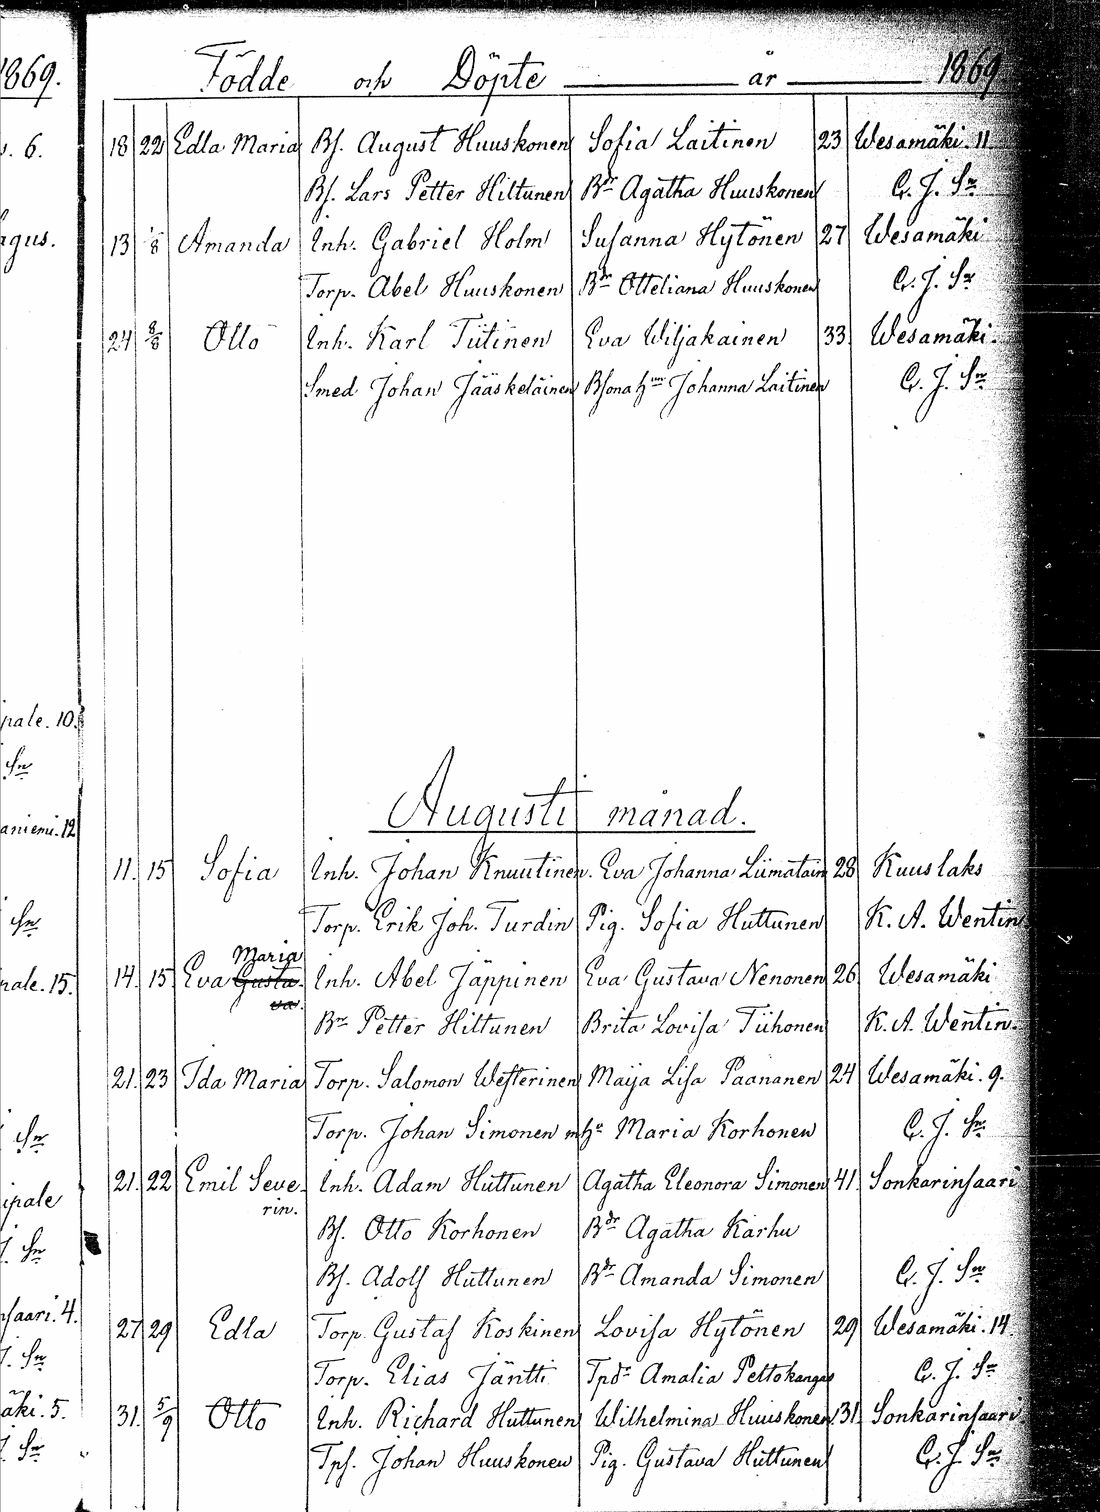 1869.
Födde och Döpte år 1869
6.
18 22 Edla Maria Bs. August Huuskonen Sofia Laitinen 23 Wesamäki. 11
Bs. Lars Petter Hiltunen Bdr Agatha Huuskonen C. J. Sn
agus.
13 1/8 Amanda Inh. Gabriel Holm Susanna Hytönen 27 Wesamäki
Torp. Abel Huuskonen Bdr Otteliana Huuskonen C. J. Sn
24 8/8 Otto Inh. Karl Tiitinen Eva Wiljakainen 33 Wesamäki.
Smed Johan Jääskeläinen Bsona hm Johanna Laitinen C. J. Sn
pale. 10.
Sn
Augusti månad.
aniemi. 12
11. 15 Sofia Inh. Johan Knuutinen. Eva Johanna Liimatain 28 Kuuslaks
Sn
Torp. Erik Joh. Turdin Pig. Sofia Huttunen K. A. Wentin
Maria
pale. 15.
14. 15 Eva Gusta. Inh. Abel Jäppinen Eva Gustava Nenonen 26 Wesamäki
va.
Bn Petter Hiltunen Brita Lovisa Tiihonen K. A. Wentin.
21. 23 Ida Maria Torp. Salomon Westerinen Maija Lisa Paananen 24 Wesamäki. 9.
Sn
Torp. Johan Simonen m hu Maria Korhonen C. J. Sn
21. 22 Emil Seve- Inh. Adam Huttunen Agatha Eleonora Simonen 41. Sonkarinsaari
rin.
ipale
Bs. Otto Korhonen Bdr Agatha Karhu
J. Sn
Bs. Adolf Huttunen Bdr Amanda Simonen C. J. Sn
nsaari. 4.
27 29 Edla Torp. Gustaf Koskinen Lovisa Hytönen 29 Wesamäki. 14.
J. Sn
Torp. Elias Jäntti Tpdr Amalia Peltokangas C. J. Sn
äki. 5.
31. 5/9 Otto Inh. Richard Huttunen Wilhelmina Huuskonen 31. Sonkarinsaari
J. Sn
Tps. Johan Huuskonen Pig. Gustava Huttunen C. J. Sn